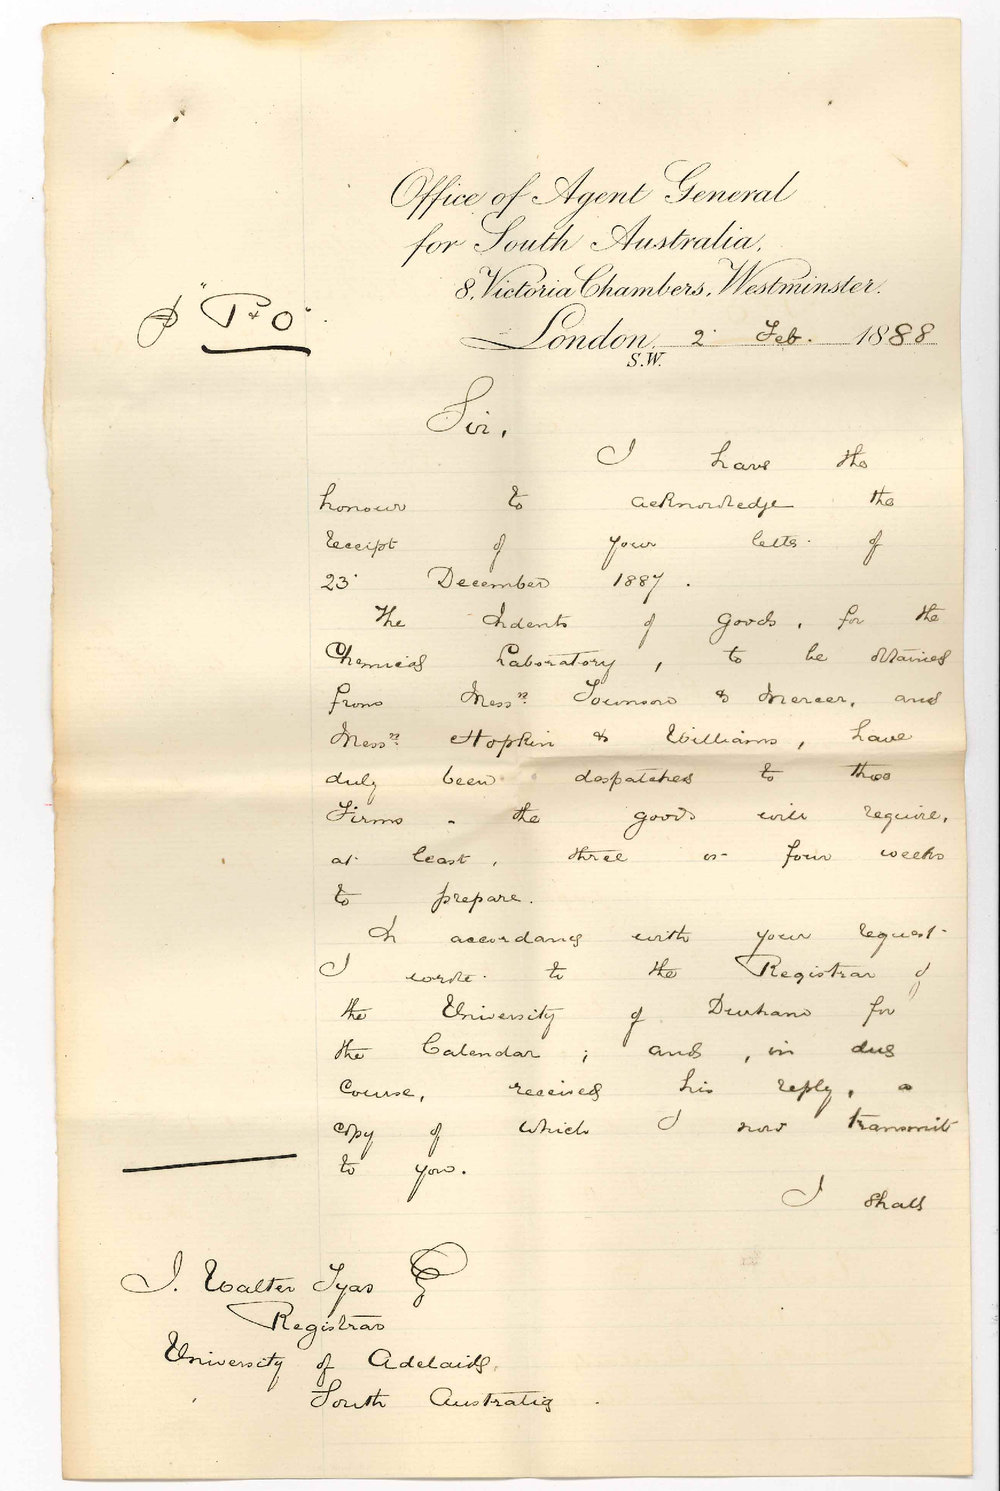 Office of Agent General
for South Australia,
8, Victoria Chambers, Westminster.
"P & O"
London, 2 Feb. 1888
S.W.
Sir,
I have the
honour to acknowledge the
receipt of your letter of
23 December 1887.
The Indents of goods, for the
Chemical Laboratory, to be obtained
from Messrs. Townson & Mercer, and
Messrs. Hopkin & Williams, have
duly been despatched to those
Firms - the goods will require,
at least, three or four weeks
to prepare.
In accordance with your request
I wrote to the Registrar of
the University of Durham for
the Calendar; and, in due
course, received his reply, a
copy of which I now transmit
to you.
I shall
J. Walter Tyas
Registrar
University of Adelaide,
South Australia.